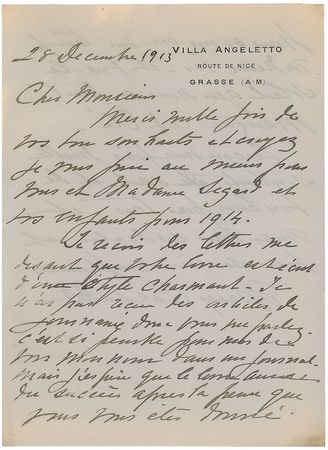 VILLA ANGELETTO
ROUTE DE NICE
GRASSE (A-M)
28 Decembre 1913
Cher Monsieur
Merci mille fois de
vos bon souhaits et croyez
je vous prie au miens pour
vous et Madame Segard et
vos enfants pour 1914.
Je reçois des lettres me
disant que votre livre est écrit
d'un style charmant. Je
n'ai pas reçu des articles de
dont vous me parlez
c'est si pour moi de
vos dans un journal
Mais j'espère que le livre aura
du succès après la peine que
vous vous êtes donné